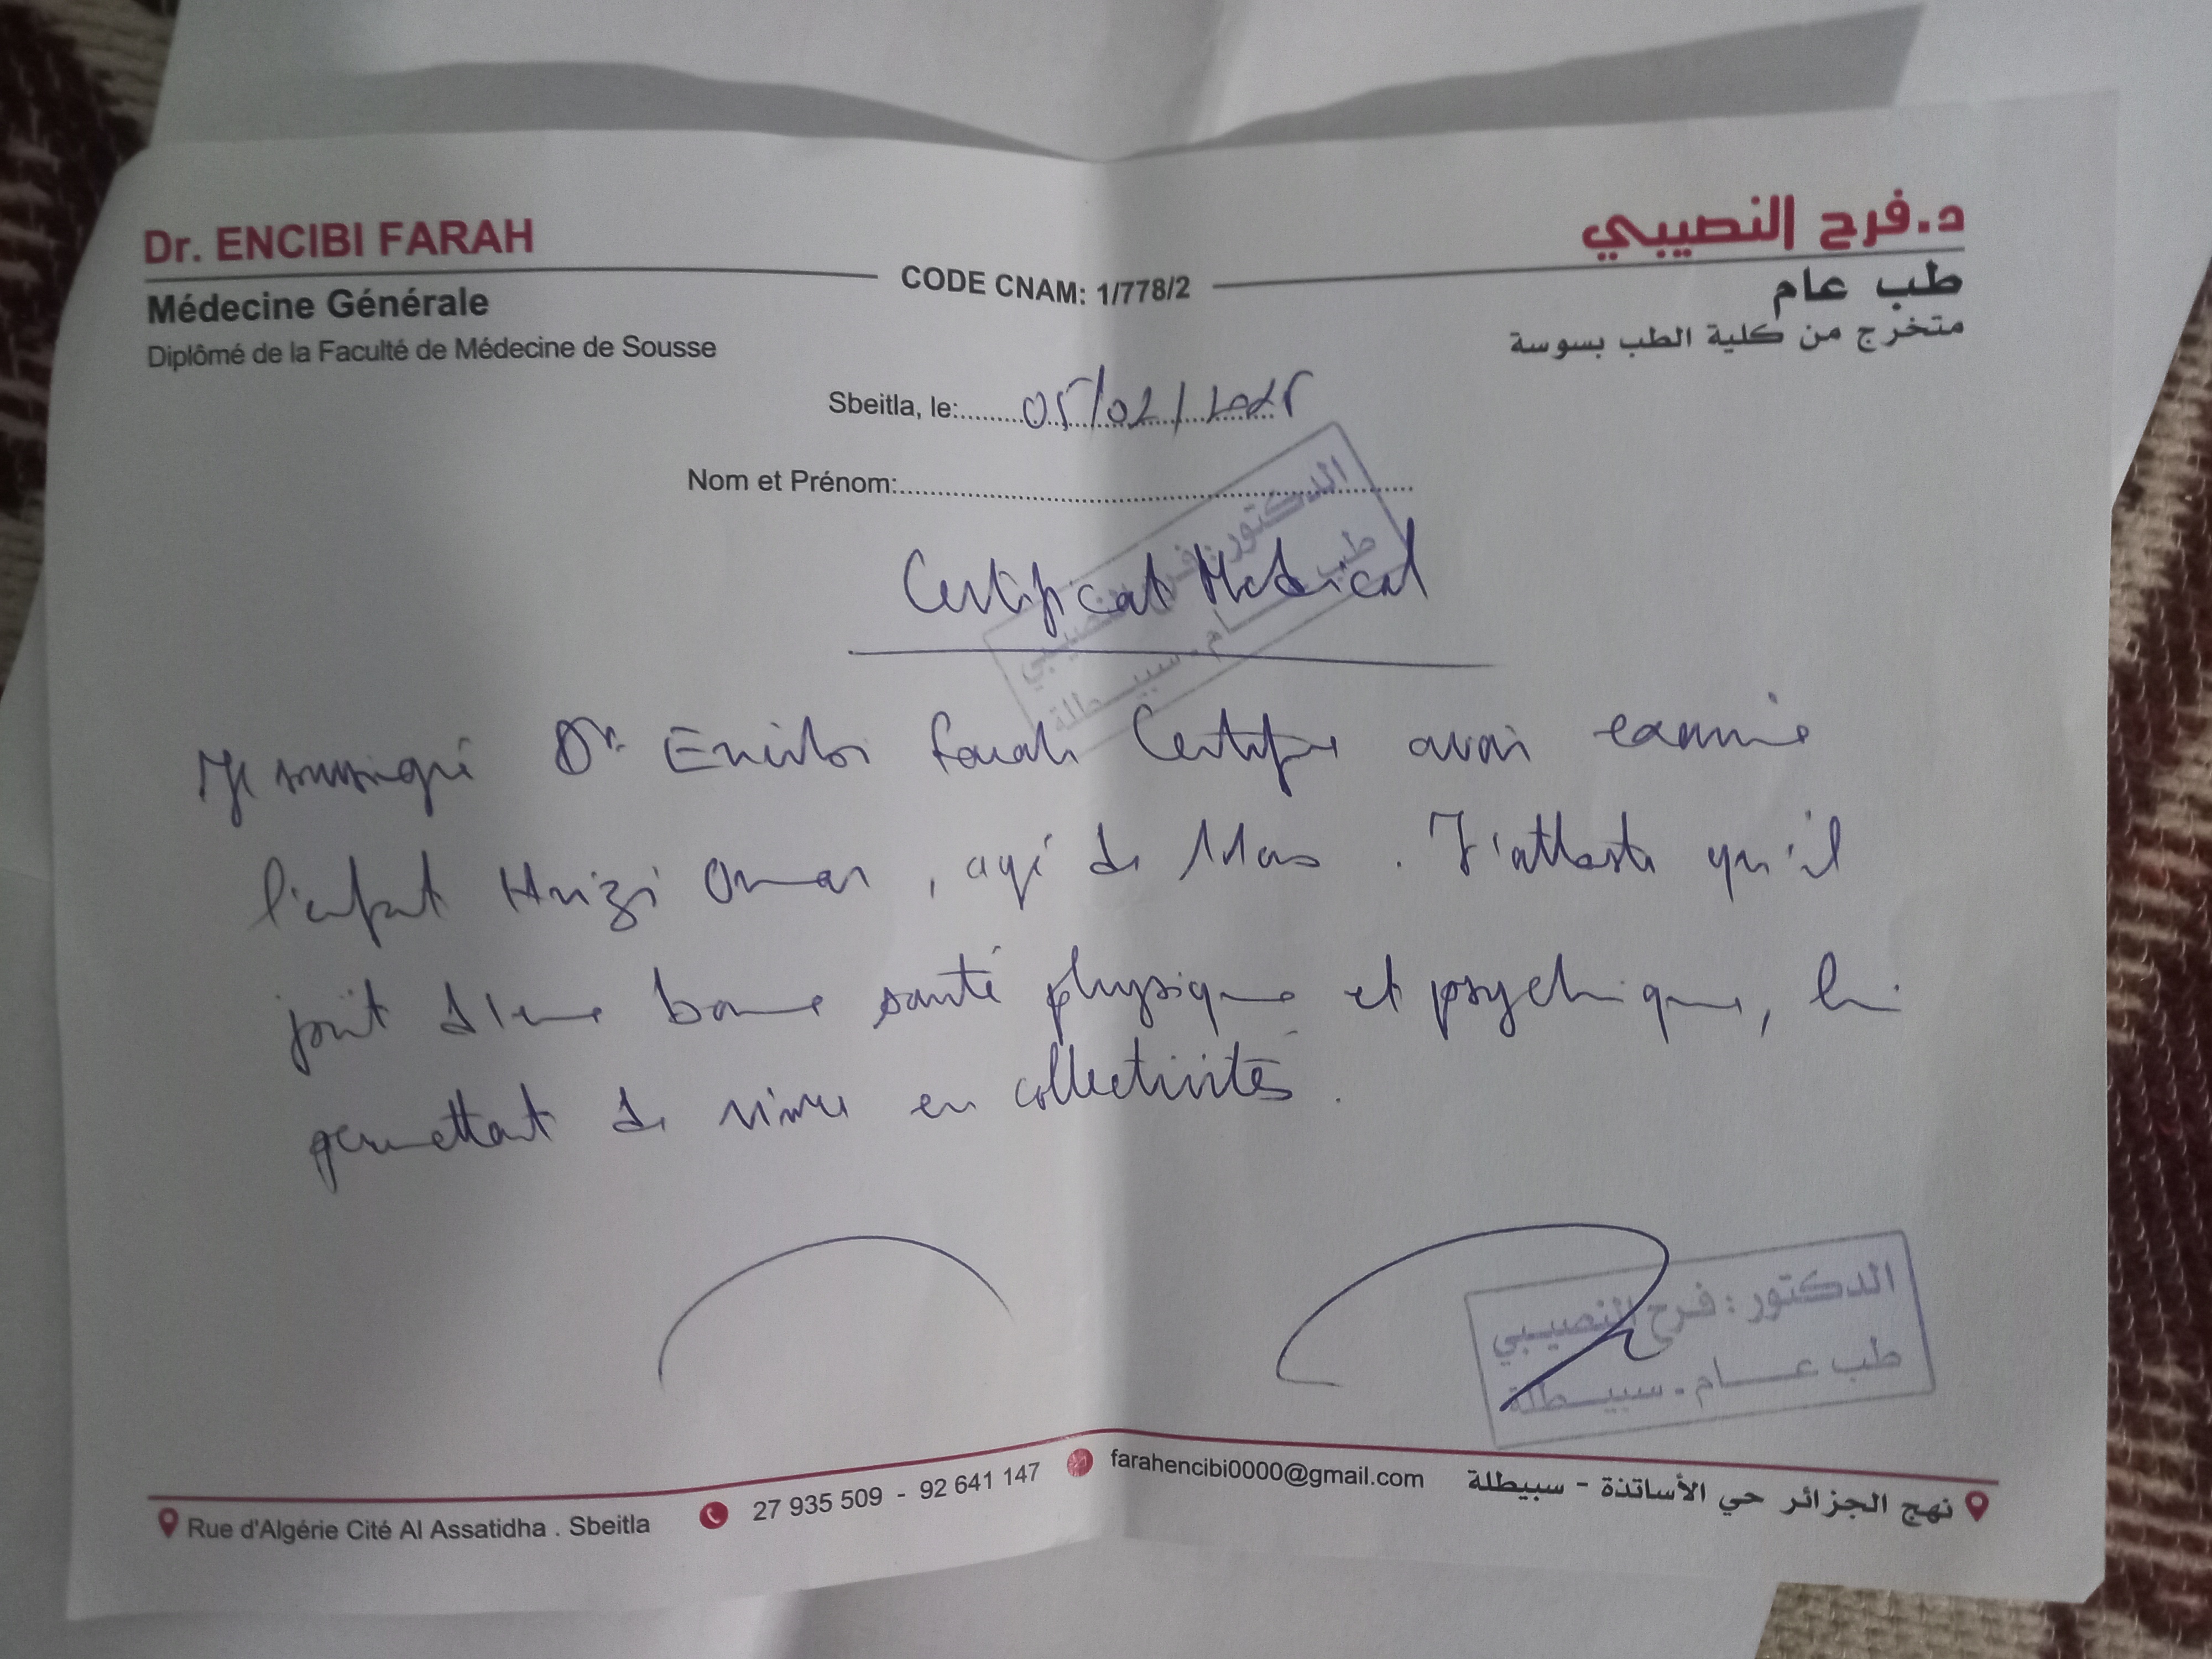 Dr. ENCIBI FARAH
د.فرح النصيبي
CODE CNAM: 1/778/2
Médecine Générale
طب عام
Diplômé de la Faculté de Médecine de Sousse
متخرج من كلية الطب بسوسة
Sbeitla, le:........05/02/2025
Nom et Prénom:
الدكتور: فرح النصيبي
طب عام - سبيطلة
Certificat Médical
Je soussigné Dr. Encibi Farah Certifie avoir examiné
l'enfant Hrizi Omar, agé de 11 ans. J'atteste qu'il
jouit d'une bonne santé physique et psychique, lui
permettant de vivre en collectivités.
الدكتور : فرح النصيبي
طب عام - سبيطلة
Rue d'Algérie Cité Al Assatidha . Sbeitla
27 935 509 - 92 641 147
farahencibi0000@gmail.com
نهج الجزائر حي الأساتذة - سبيطلة